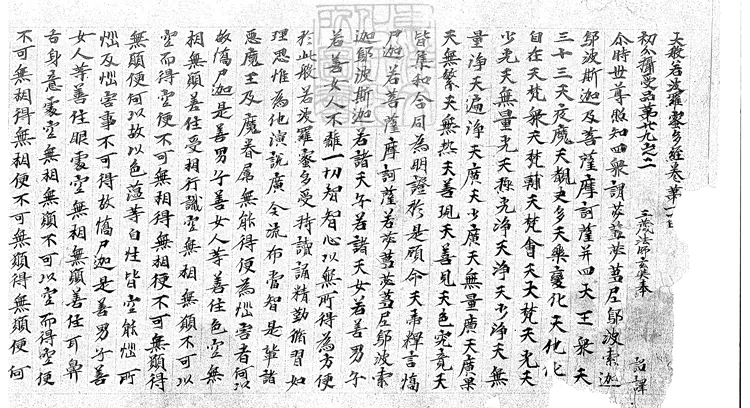 大般若波羅蜜多經卷第一百
初分攝受品第廿九之二
三藏法師玄奘奉 詔譯
尒時世尊照知四衆謂苾芻苾芻尼鄔波索迦
鄔波斯迦及菩薩摩訶薩并四天王衆天
三十三天夜魔天覩史多天樂變化天他化
自在天梵衆天梵輔天梵會天大梵天光天
少光天無量光天極光淨天淨天少淨天無
量淨天遍淨天廣天少廣天無量廣天廣果
天無繁天無熱天善現天善見天色究竟天
皆集和合同為明證於是顧命天帝釋言憍
尸迦若菩薩摩訶薩若苾芻苾芻尼鄔波索
迦鄔波斯迦若諸天子若諸天女若善男子
若善女人不離一切智智心以無所得為方便
於此般若波羅蜜多受持讀誦精勤脩習如
理思惟為他演說廣令流布當智是輩諸
惡魔王及魔眷屬無能得便為惱害者何以
故憍尸迦是善男子善女人等善住色空無
相無願善住受想行識空無相無願不可以
空而得空便不可無相得無相便不可無願得
無願便何以故以色蘊等自性皆空能惱所
惱及惱害事不可得故憍尸迦是善男子善
女人等善住眼處空無相無願善住耳鼻
舌身意處空無相無願不可以空而得空便
不可無相得無相便不可無願得無願便何